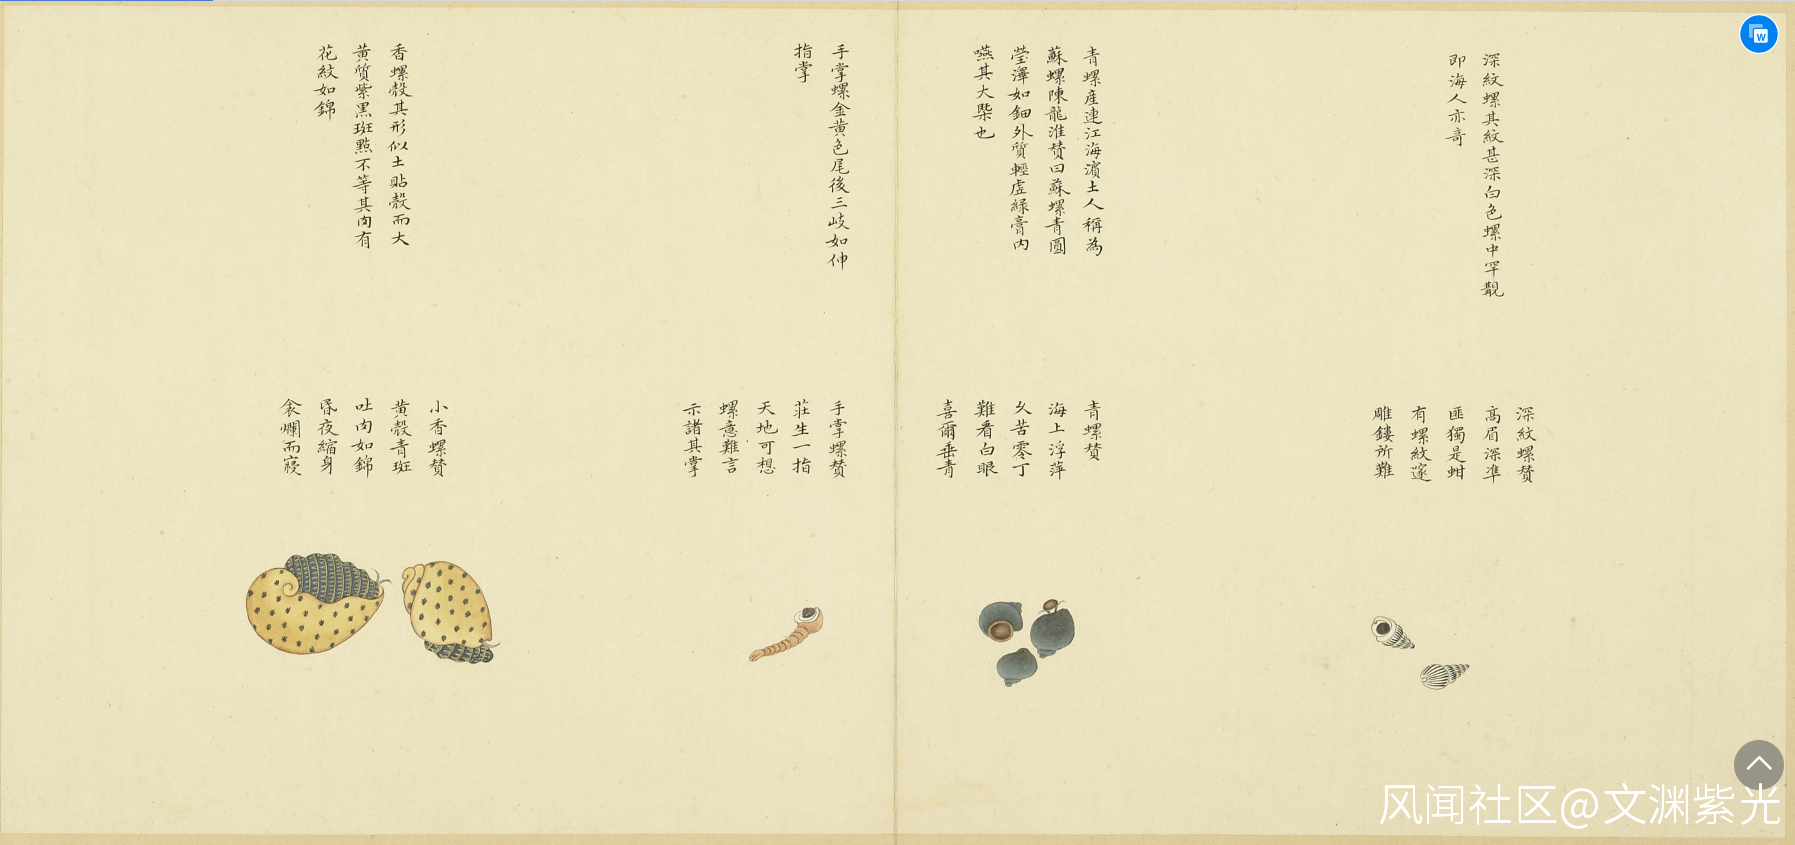 深紋螺其紋甚深白色螺中罕覯
即海人亦奇
深紋螺賛
高眉深準
匪獨是蚶
有螺紋邃
雕鏤所難
青螺產連江海濱土人稱為
蘇螺陳龍淮賛曰蘇螺青圓
瑩澤如鈿外質輕虛綠膏內
嚥其大槩也
青螺賛
海上浮萍
久苦零丁
難看白眼
喜爾垂青
手掌螺金黄色尾後三岐如伸
指掌
手掌螺賛
莊生一指
天地可想
螺意難言
示諸其掌
香螺殻其形似土貼殻而大
黄質紫黑斑點不等其肉有
花紋如錦
小香螺賛
黄殻青斑
吐肉如錦
昏夜縮身
衾爛而寢
风闻社区@文渊紫光